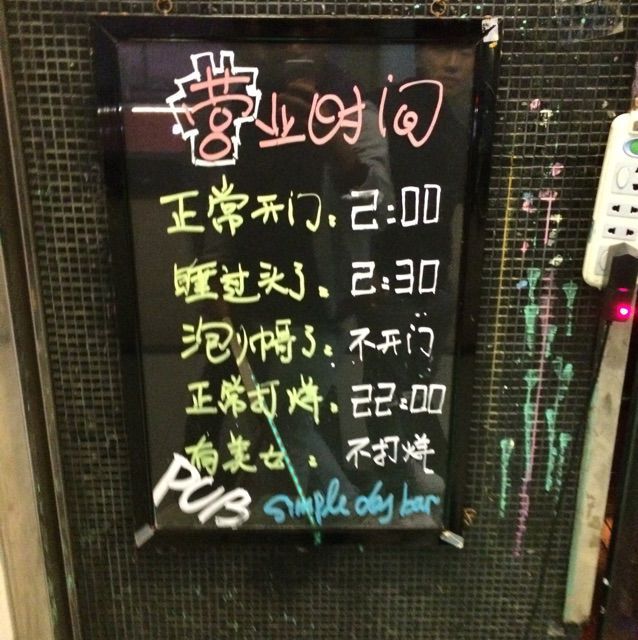 营业时间
正常开门：2:00
睡过头了：2:30
泡帅哥了：不开门
正常打烊：22:00
有美女：不打烊
PUB simple day bar